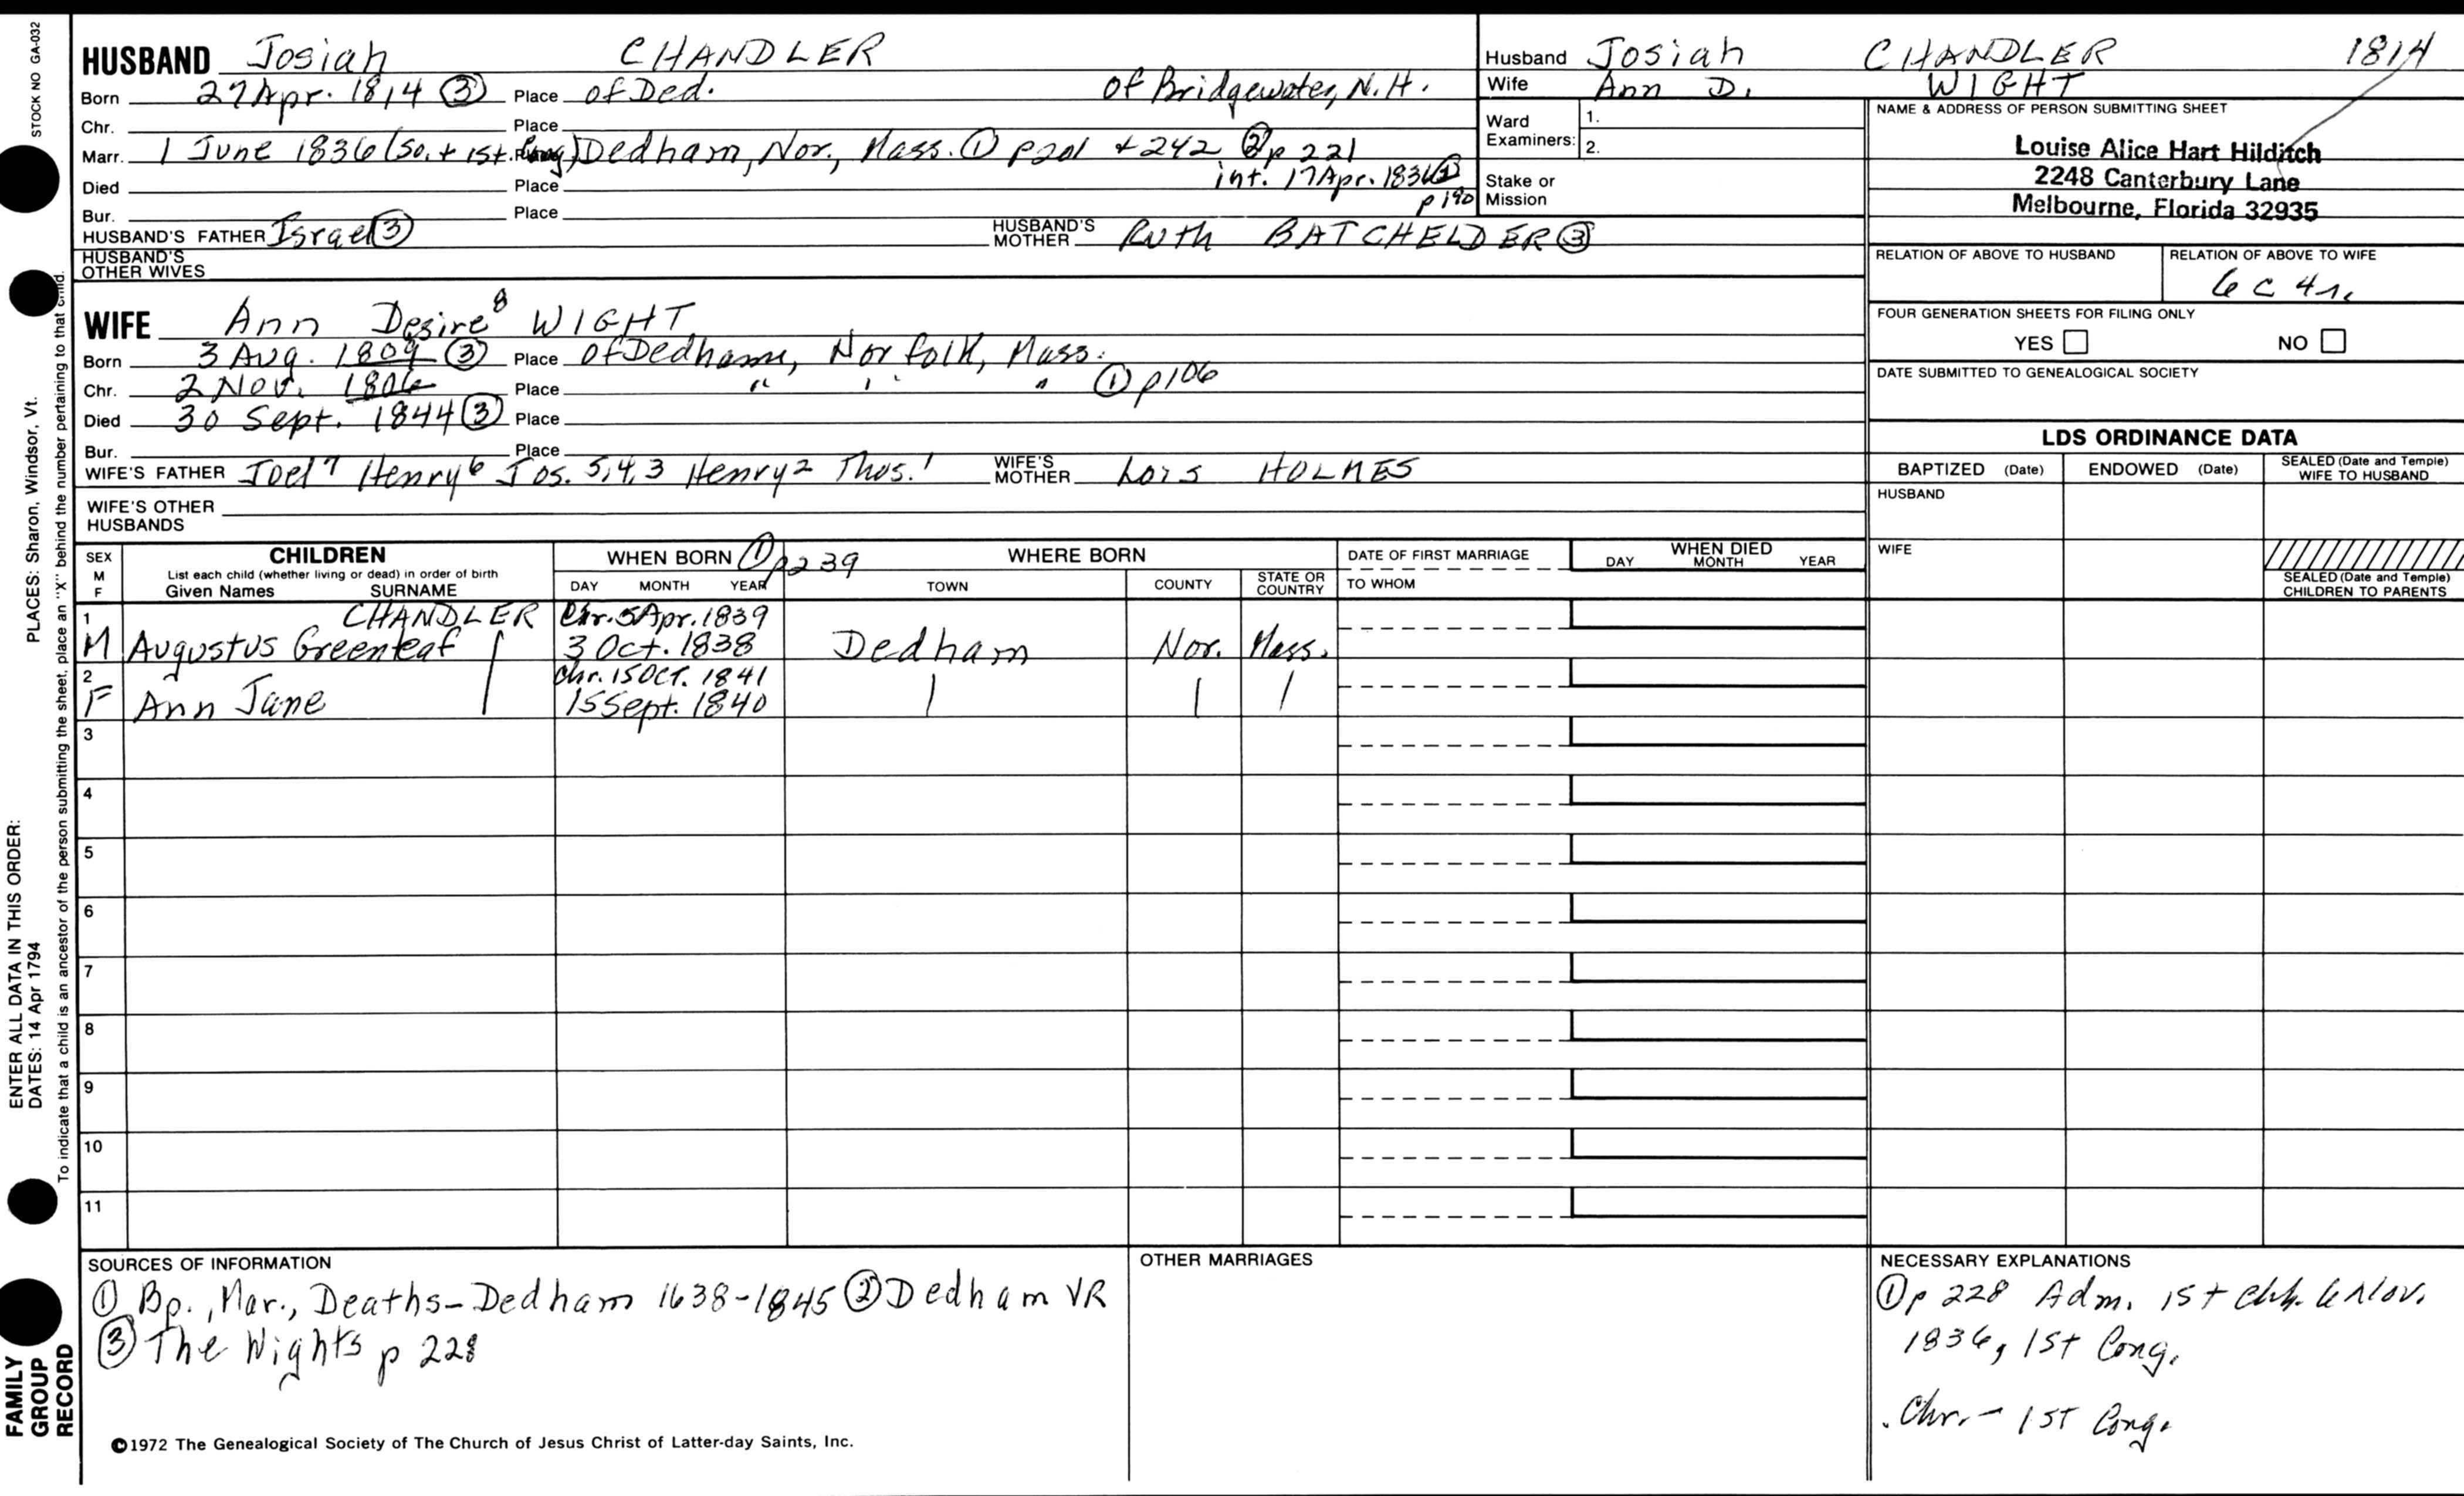 STOCK NO GA-032
HUSBAND Josiah CHANDLER
Born 27 Apr. 1814 ③ Place of Ded. of Bridgewater, N.H.
Chr. Place
Marr. 1 June 1836 (So. + 1st. Cong) Dedham, Nor., Mass. ① p201 + 242 ② p 221
Died Place int. 17 Apr. 1836 ① p 190
Bur. Place
HUSBAND'S FATHER Israel ③ HUSBAND'S MOTHER Ruth BATCHELDER ③
HUSBAND'S OTHER WIVES
WIFE Ann Desire⁸ WIGHT
Born 3 Aug. 1809 ③ Place of Dedham, Norfolk, Mass.
Chr. 2 Nov. 1806 Place " " " ① p106
Died 30 Sept. 1844 ③ Place
Bur. Place
WIFE'S FATHER Joel⁷ Henry⁶ Jos. 5,4,3 Henry² Thos.¹ WIFE'S MOTHER Lois HOLMES
WIFE'S OTHER HUSBANDS
Husband Josiah CHANDLER 1814
Wife Ann D. WIGHT
Ward Examiners: 1.
2.
Stake or Mission
NAME & ADDRESS OF PERSON SUBMITTING SHEET
Louise Alice Hart Hilditch
2248 Canterbury Lane
Melbourne, Florida 32935
RELATION OF ABOVE TO HUSBAND
RELATION OF ABOVE TO WIFE
6 c 4 r.
FOUR GENERATION SHEETS FOR FILING ONLY
YES NO
DATE SUBMITTED TO GENEALOGICAL SOCIETY
LDS ORDINANCE DATA
BAPTIZED (Date) ENDOWED (Date) SEALED (Date and Temple) WIFE TO HUSBAND
HUSBAND
WIFE
SEALED (Date and Temple) CHILDREN TO PARENTS
SEX M F
CHILDREN
List each child (whether living or dead) in order of birth
Given Names SURNAME
WHEN BORN ① p239
DAY MONTH YEAR
WHERE BORN
TOWN COUNTY STATE OR COUNTRY
DATE OF FIRST MARRIAGE
TO WHOM
WHEN DIED
DAY MONTH YEAR
1 CHANDLER Chr. 5 Apr. 1839
M Augustus Greenleaf 3 Oct. 1838 Dedham Nor. Mass.
2 Chr. 15 Oct. 1841
F Ann Jane 15 Sept. 1840
3
4
5
6
7
8
9
10
11
SOURCES OF INFORMATION
① Bp., Mar., Deaths - Dedham 1638-1845 ② Dedham VR
③ The Wights p 228
©1972 The Genealogical Society of The Church of Jesus Christ of Latter-day Saints, Inc.
OTHER MARRIAGES
NECESSARY EXPLANATIONS
① p 228 Adm. 1st Chh. 6 Nov.
1836, 1st Cong.
Chr. - 1st Cong.
PLACES: Sharon, Windsor, Vt.
ENTER ALL DATA IN THIS ORDER:
DATES: 14 Apr 1794
To indicate that a child is an ancestor of the person submitting the sheet, place an "X" behind the number pertaining to that child.
FAMILY
GROUP
RECORD